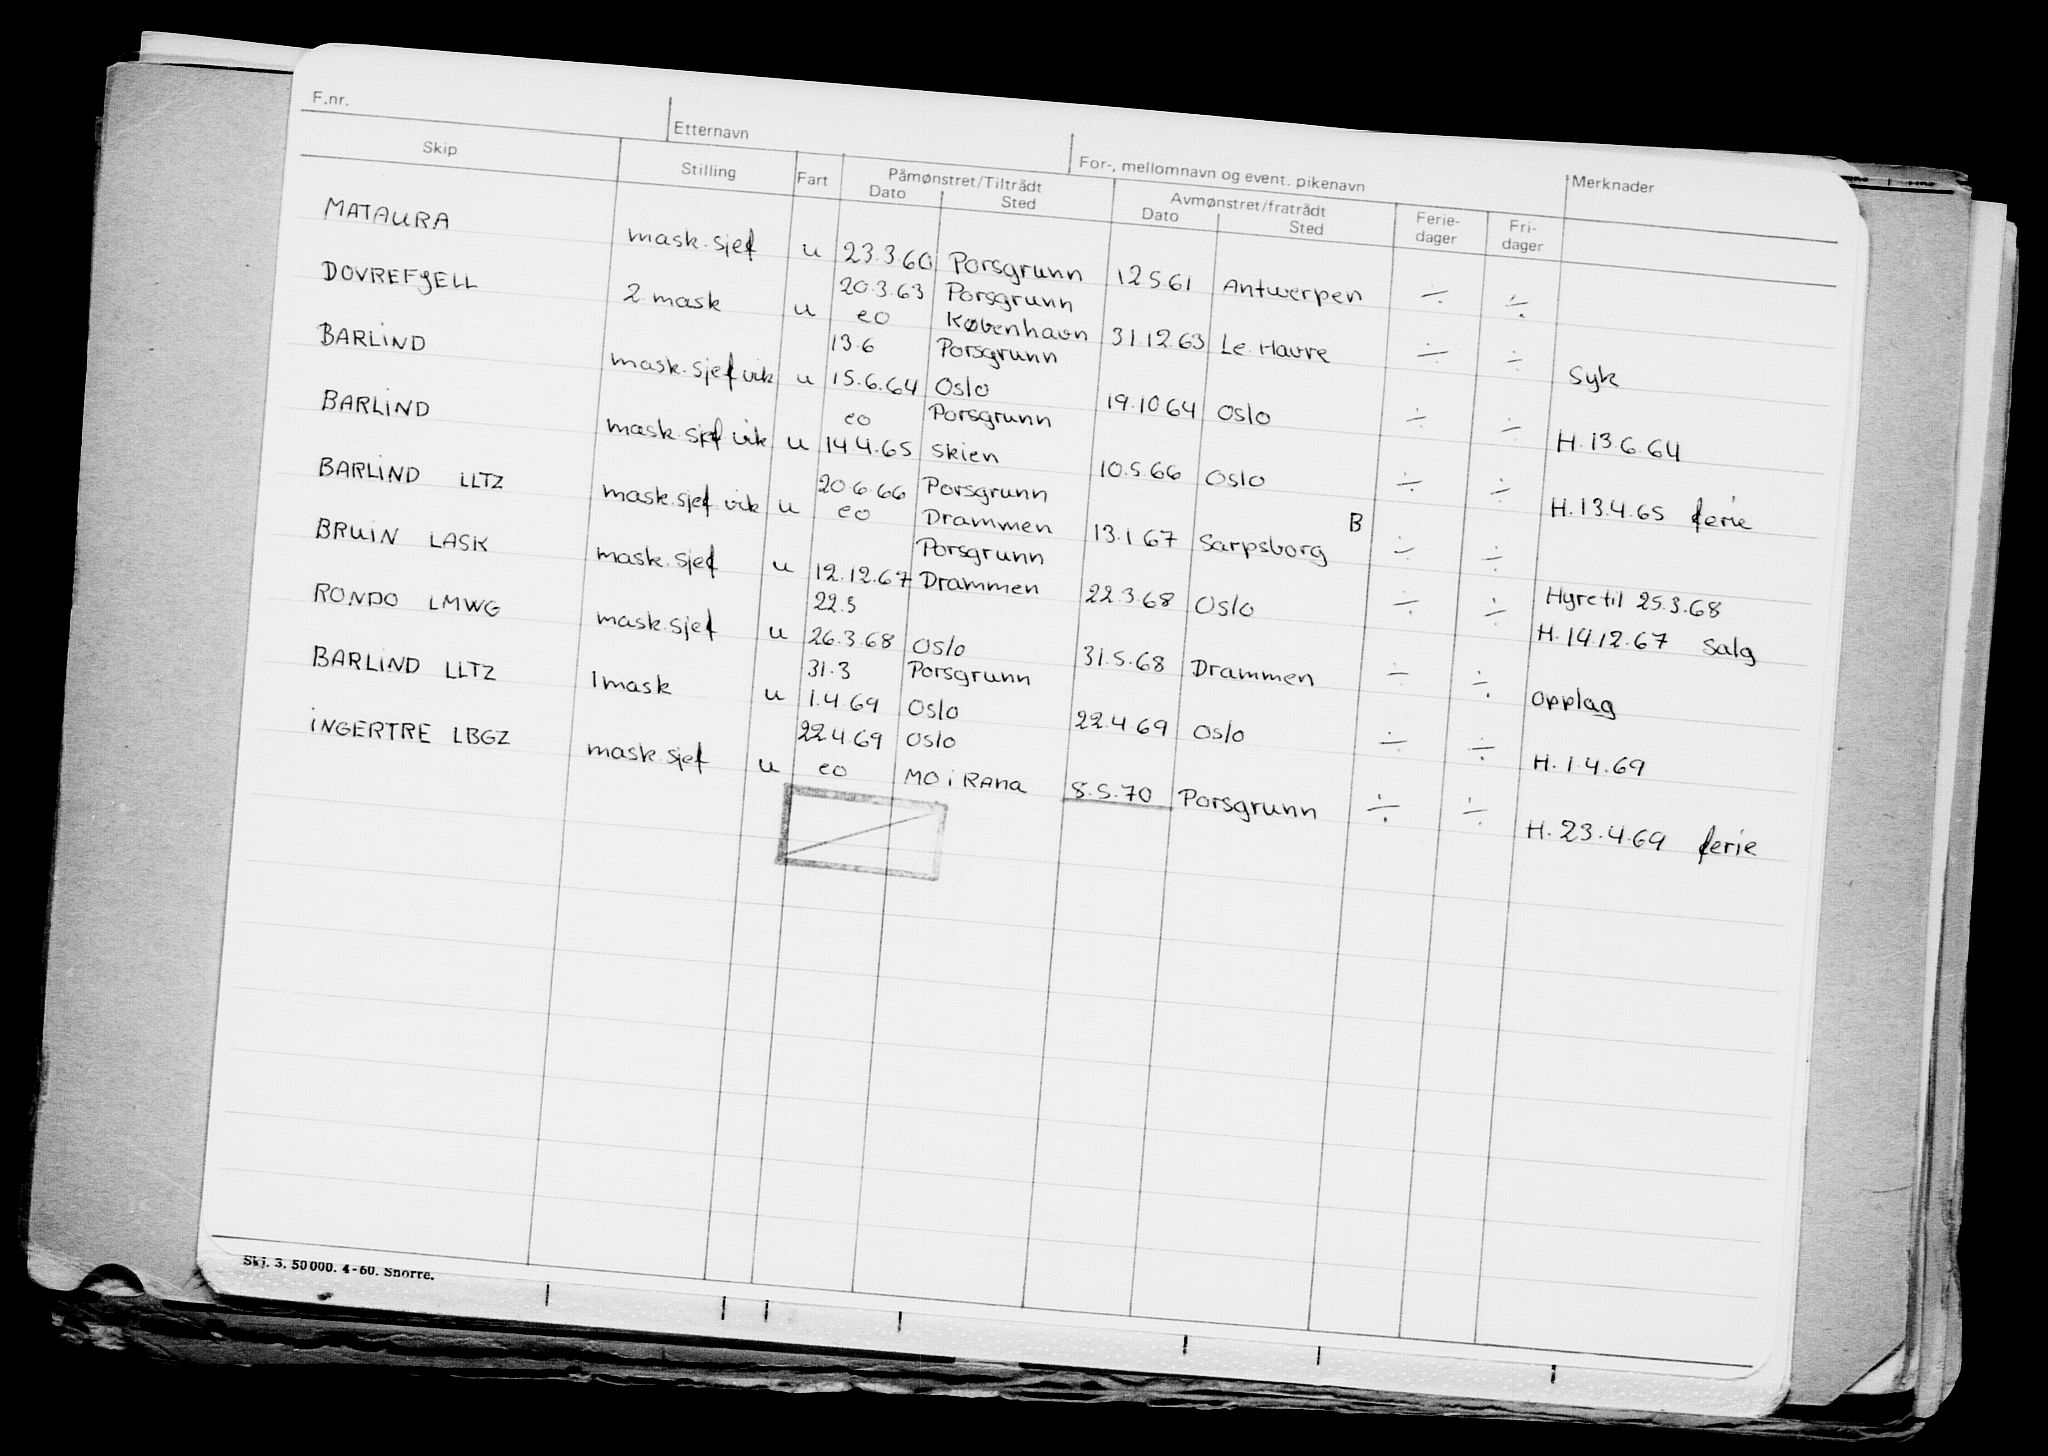 F.nr. Etternavn For-, mellomnavn og event. pikenavn
Skip Stilling Fart Påmønstret/Tiltrådt Dato Sted Avmønstret/fratrådt Dato Sted Ferie-dager Fri-dager Merknader
MATAURA mask.sjef u 23.3.60 Porsgrunn 12561 Antwerpen ÷ ÷
20.3.63 Porsgrunn
DOVREFJELL 2 mask u eo København 31.12.63 Le Havre ÷ ÷ Syk
13.6 Porsgrunn
BARLIND mask.sjef vik u 15.6.64 Oslo 19.10 64 Oslo ÷ ÷ H.13.6.64
eo Porsgrunn
BARLIND mask.sjef vik u 14.4.65 Skien 10.5.66 Oslo ÷ ÷ H.13.4.65 ferie
20.6.66 Porsgrunn B
BARLIND LLTZ mask.sjef vik u eo Drammen 13.1 67 Sarpsborg ÷ ÷
Porsgrunn Hyre til 25.3.68
BRUIN LASK mask.sjef u 12.12.67 Drammen 22.3.68 Oslo ÷ ÷ H.14.12.67 Salg
22.5
RONDO LMWG mask.sjef u 26.3.68 Oslo 31.5.68 Drammen ÷ ÷ Opplag
31.3 Porsgrunn
BARLIND LLTZ 1 mask u 1.4.69 Oslo 22.4.69 Oslo ÷ ÷ H. 1.4.69
22.4.69 Oslo
INGERTRE LBGZ mask.sjef u eo MO i RANA 8.5.70 Porsgrunn ÷ ÷ H. 23.4.69 ferie
Skj. 3. 50 000. 4-60. Snorre.